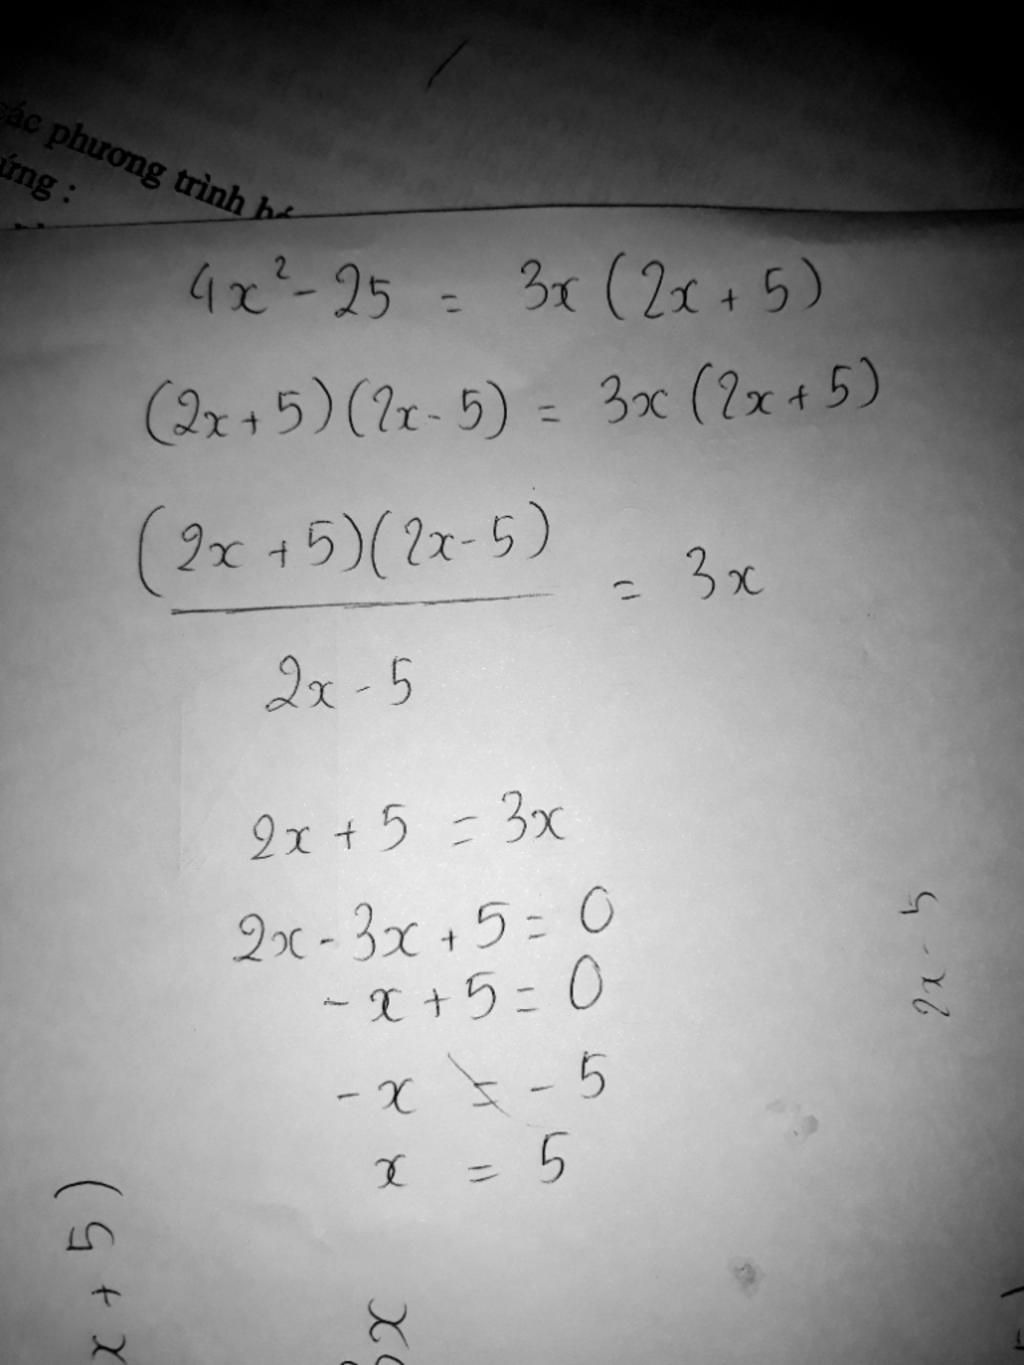 các phương trình
ứng :
4x² - 25 = 3x (2x + 5)
(2x + 5)(2x - 5) = 3x (2x + 5)
(2x + 5)(2x - 5)
= 3x
2x - 5
2x + 5 = 3x
2x - 3x + 5 = 0
- x + 5 = 0
- x = - 5
x = 5
2x - 5
x + 5)
3x